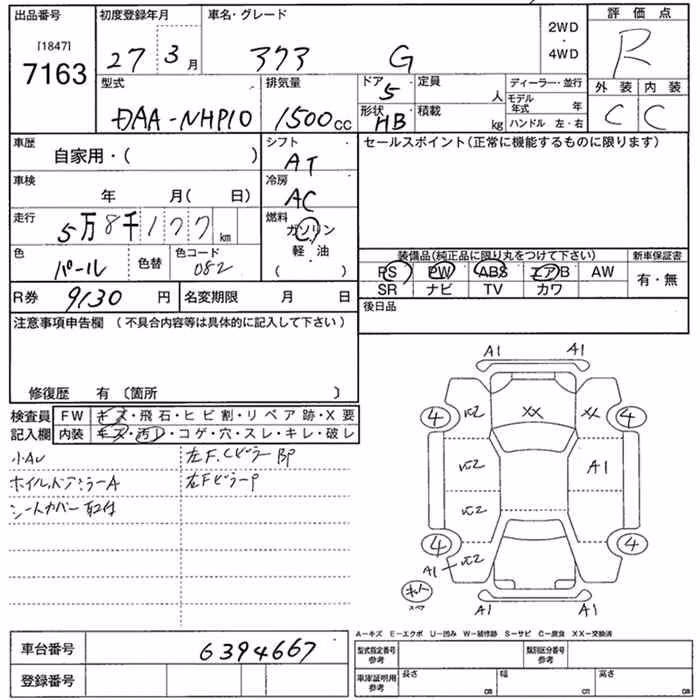 出品番号 初度登録年月 車名・グレード 2WD・4WD 評価点
[1847]
7163 27 3月 G R
型式 排気量 ドア 5 定員 人 ディーラー・並行 外装 内装
DAA-NHP10 1500cc 形状 HB 積載 kg モデル年式 年 C C
ハンドル 左・右
車歴 シフト セールスポイント(正常に機能するものに限ります)
自家用・( ) AT
車検 冷房
年 月( 日) AC
走行 燃料
5万8千177km ガソリン
軽・油
( )
色 色替 色コード 装備品(純正品に限り丸をつけて下さい) 新車保証書
パール 082 PS PW ABS エアB AW 有・無
SR ナビ TV カワ
R券 9130 円 名変期限 月 日 後日品
注意事項申告欄 (不具合内容等は具体的に記入して下さい)
修復歴 有 〔箇所 〕
検査員 FW キズ・飛石・ヒビ割・リペア跡・X要
記入欄 内装 キズ・汚レ・コゲ・穴・スレ・キレ・破レ
A1 A1
4 XX XX 4
A1
4 4
A1
A1 A1
シートカバー取付
A−キズ E−エクボ U−凹み W−補修跡 S−サビ C−腐食 XX−交換済
車台番号 6394667 型式指定番号 参考 類別区分番号 参考
登録番号 車庫証明用 参考 長さ cm 幅 cm 高さ cm